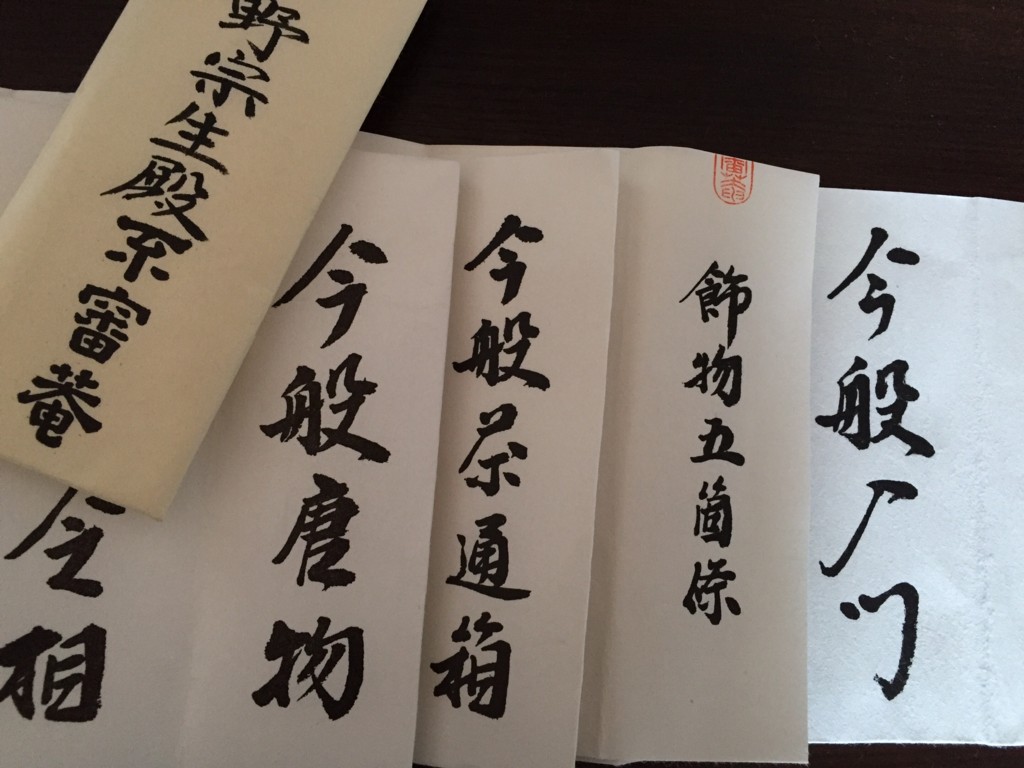 今般入門
飾物五箇條
今般茶通箱
今般唐物
相
野宗生殿不審菴